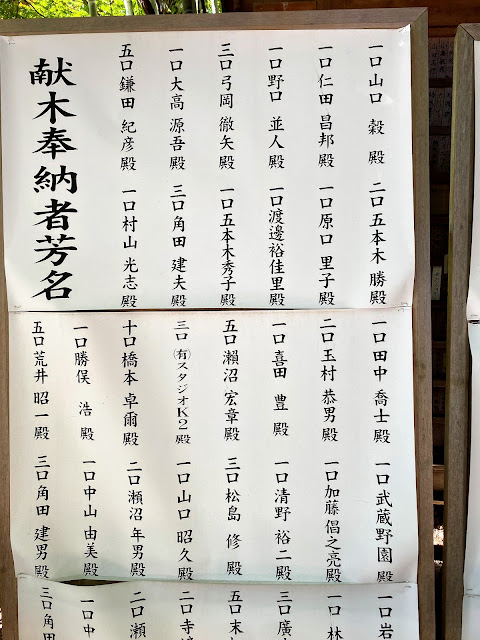 一口山口 穀 殿 二口五本木 勝殿
一口仁田 昌邦 殿 一口原口 里子 殿
一口野口 並人 殿 一口渡邊裕佳里殿
三口弓岡 徹矢 殿 一口五本木秀子殿
一口大高 源吾 殿 三口角田 建夫 殿
五口鎌田 紀彦 殿 一口村山 光志 殿
献木奉納者芳名
一口田中 喬士殿 一口武蔵野園 殿
二口玉村 恭男 殿 一口加藤 倡之亮殿
一口喜田 豊 殿 一口清野 裕二殿
五口瀬沼 宏章殿 三口松島 修 殿
三口㈲スタジオK2殿 一口山口 昭久 殿
十口橋本 卓爾殿 二口瀬沼 年男殿
一口勝俣 浩 殿 一口中山 由美殿
五口荒井 昭一殿 三口角田 建男殿
一口岩
一口林
三口廣
五口末
二口寺
二口瀬
一口中
三口角田